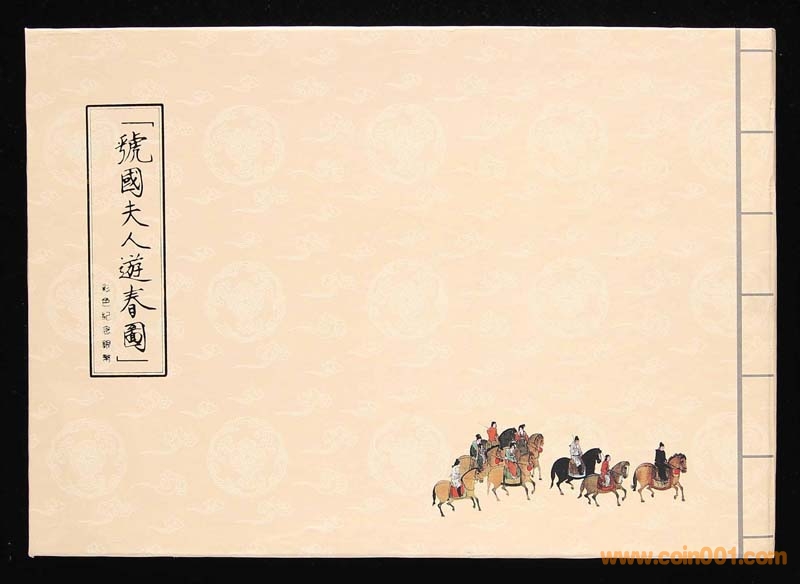 「虢國夫人遊春圖」
彩色紀念銀幣
www.coin001.com